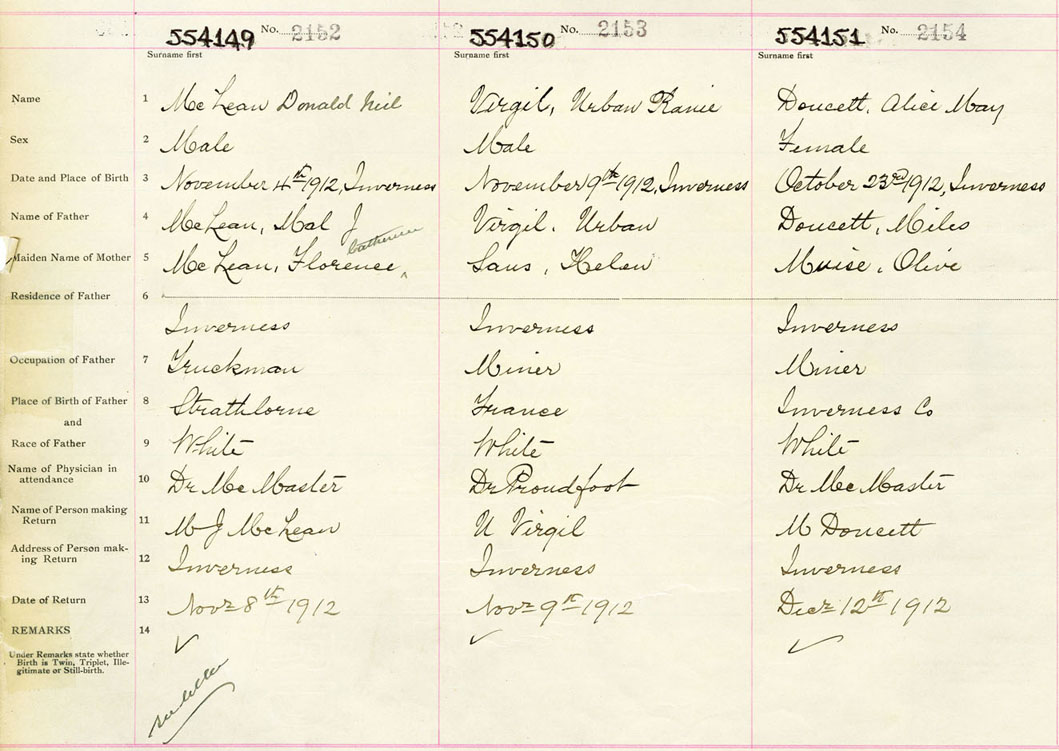 554149 No. 2152 554150 No. 2153 554151 No. 2154
Surname first Surname first Surname first
Name 1 McLean Donald Neil Virgil, Urban Ranie Doucett, Alice May
Sex 2 Male Male Female
Date and Place of Birth 3 November 4th 1912, Inverness November 9th 1912, Inverness October 23rd 1912, Inverness
Name of Father 4 McLean, Mal J Virgil. Urban Doucett, Miles
Catherine
Maiden Name of Mother 5 McLean, Florence ‸ Saus, Helen Muise, Olive
Residence of Father 6
Inverness Inverness Inverness
Occupation of Father 7 Truckman Miner Miner
Place of Birth of Father 8 Strathlorne France Inverness Co
and
Race of Father 9 White White White
Name of Physician in
attendance 10 Dr McMaster Dr Proudfoot Dr McMaster
Name of Person making
Return 11 M J McLean U Virgil M Doucett
Address of Person mak-
ing Return 12 Inverness Inverness Inverness
Date of Return 13 Novr 8th 1912 Novr 9th 1912 Decr 12th 1912
REMARKS 14 ✓ ✓ ✓
Under Remarks state whether
Birth is Twin, Triplet, Ille-
gitimate or Still-birth.